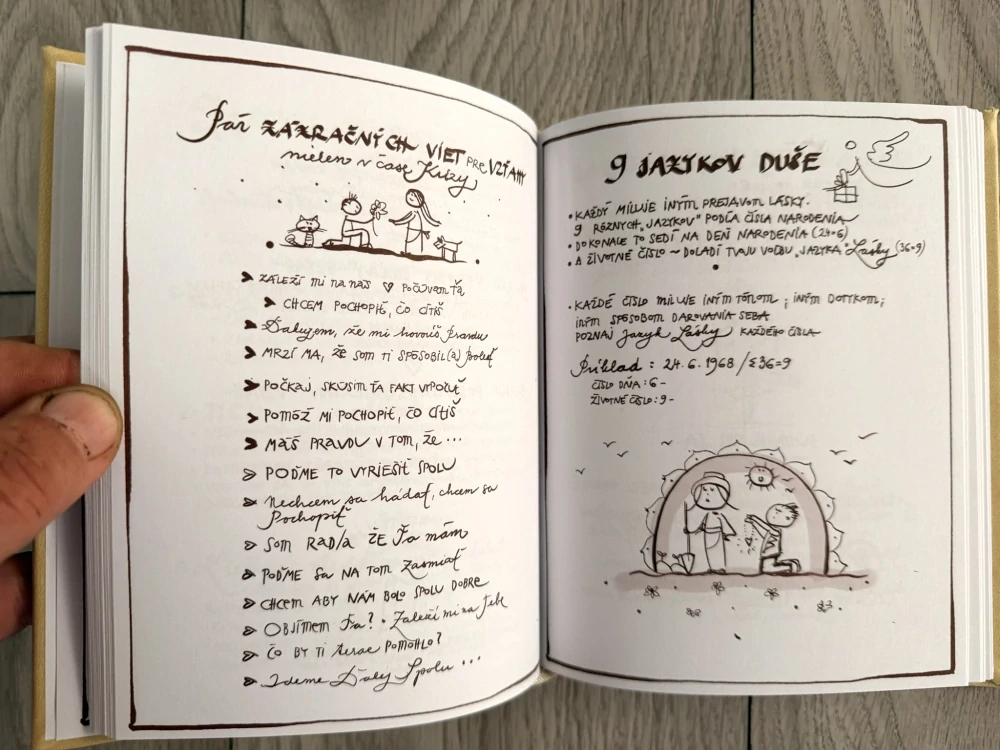 Pár ZÁZRAČNÝCH VIET PRE VZŤAHY
nielen v čase Krízy
ZÁLEŽÍ mi na nás ♡ POČÚVAM ŤA
CHCEM POCHOPIŤ, ČO CÍTIŠ
Ďakujem, že mi hovoríš Pravdu
MRZÍ MA, ŽE SOM TI SPÔSOBIL(A) bolesť
POČKAJ, SKÚSIM ŤA FAKT VYPOČUŤ
POMÔŽ MI POCHOPIŤ, ČO CÍTIŠ
MÁŠ PRAVDU V TOM, ŽE ...
POĎME TO VYRIEŠIŤ SPOLU
Nechcem sa hádať, chcem sa
Pochopiť
SOM RÁD/A ŽE Ťa mám
POĎME Sa NA TOM Zasmiať
CHCEM ABY NÁM BOLO SPOLU DOBRE
OBJÍMEM Ťa? • Záleží mi na Tebe
ČO BY TI teraz POMOHLO?
Ideme Ďalej Spolu ...
9 JAZYKOV DUŠE
• KAŽDÝ MILUJE INÝM PREJAVOM LÁSKY.
9 RÔZNYCH „JAZYKOV" PODĽA ČÍSLA NARODENIA
• DOKONALE TO SEDÍ NA DEŇ NARODENIA (24=6)
• A ŽIVOTNÉ ČÍSLO ~ DOLADÍ TVOJU VOĽBU „JAZYKA" Lásky (36=9)
• KAŽDÉ ČÍSLO MILUJE INÝM TÓNOM, INÝM DOTYKOM,
INÝM SPÔSOBOM DAROVANIA SEBA
POZNAJ Jazyk Lásky KAŽDÉHO ČÍSLA
Príklad : 24.6.1968 / Σ36=9
ČÍSLO DŇA : 6 -
ŽIVOTNÉ ČÍSLO : 9 -